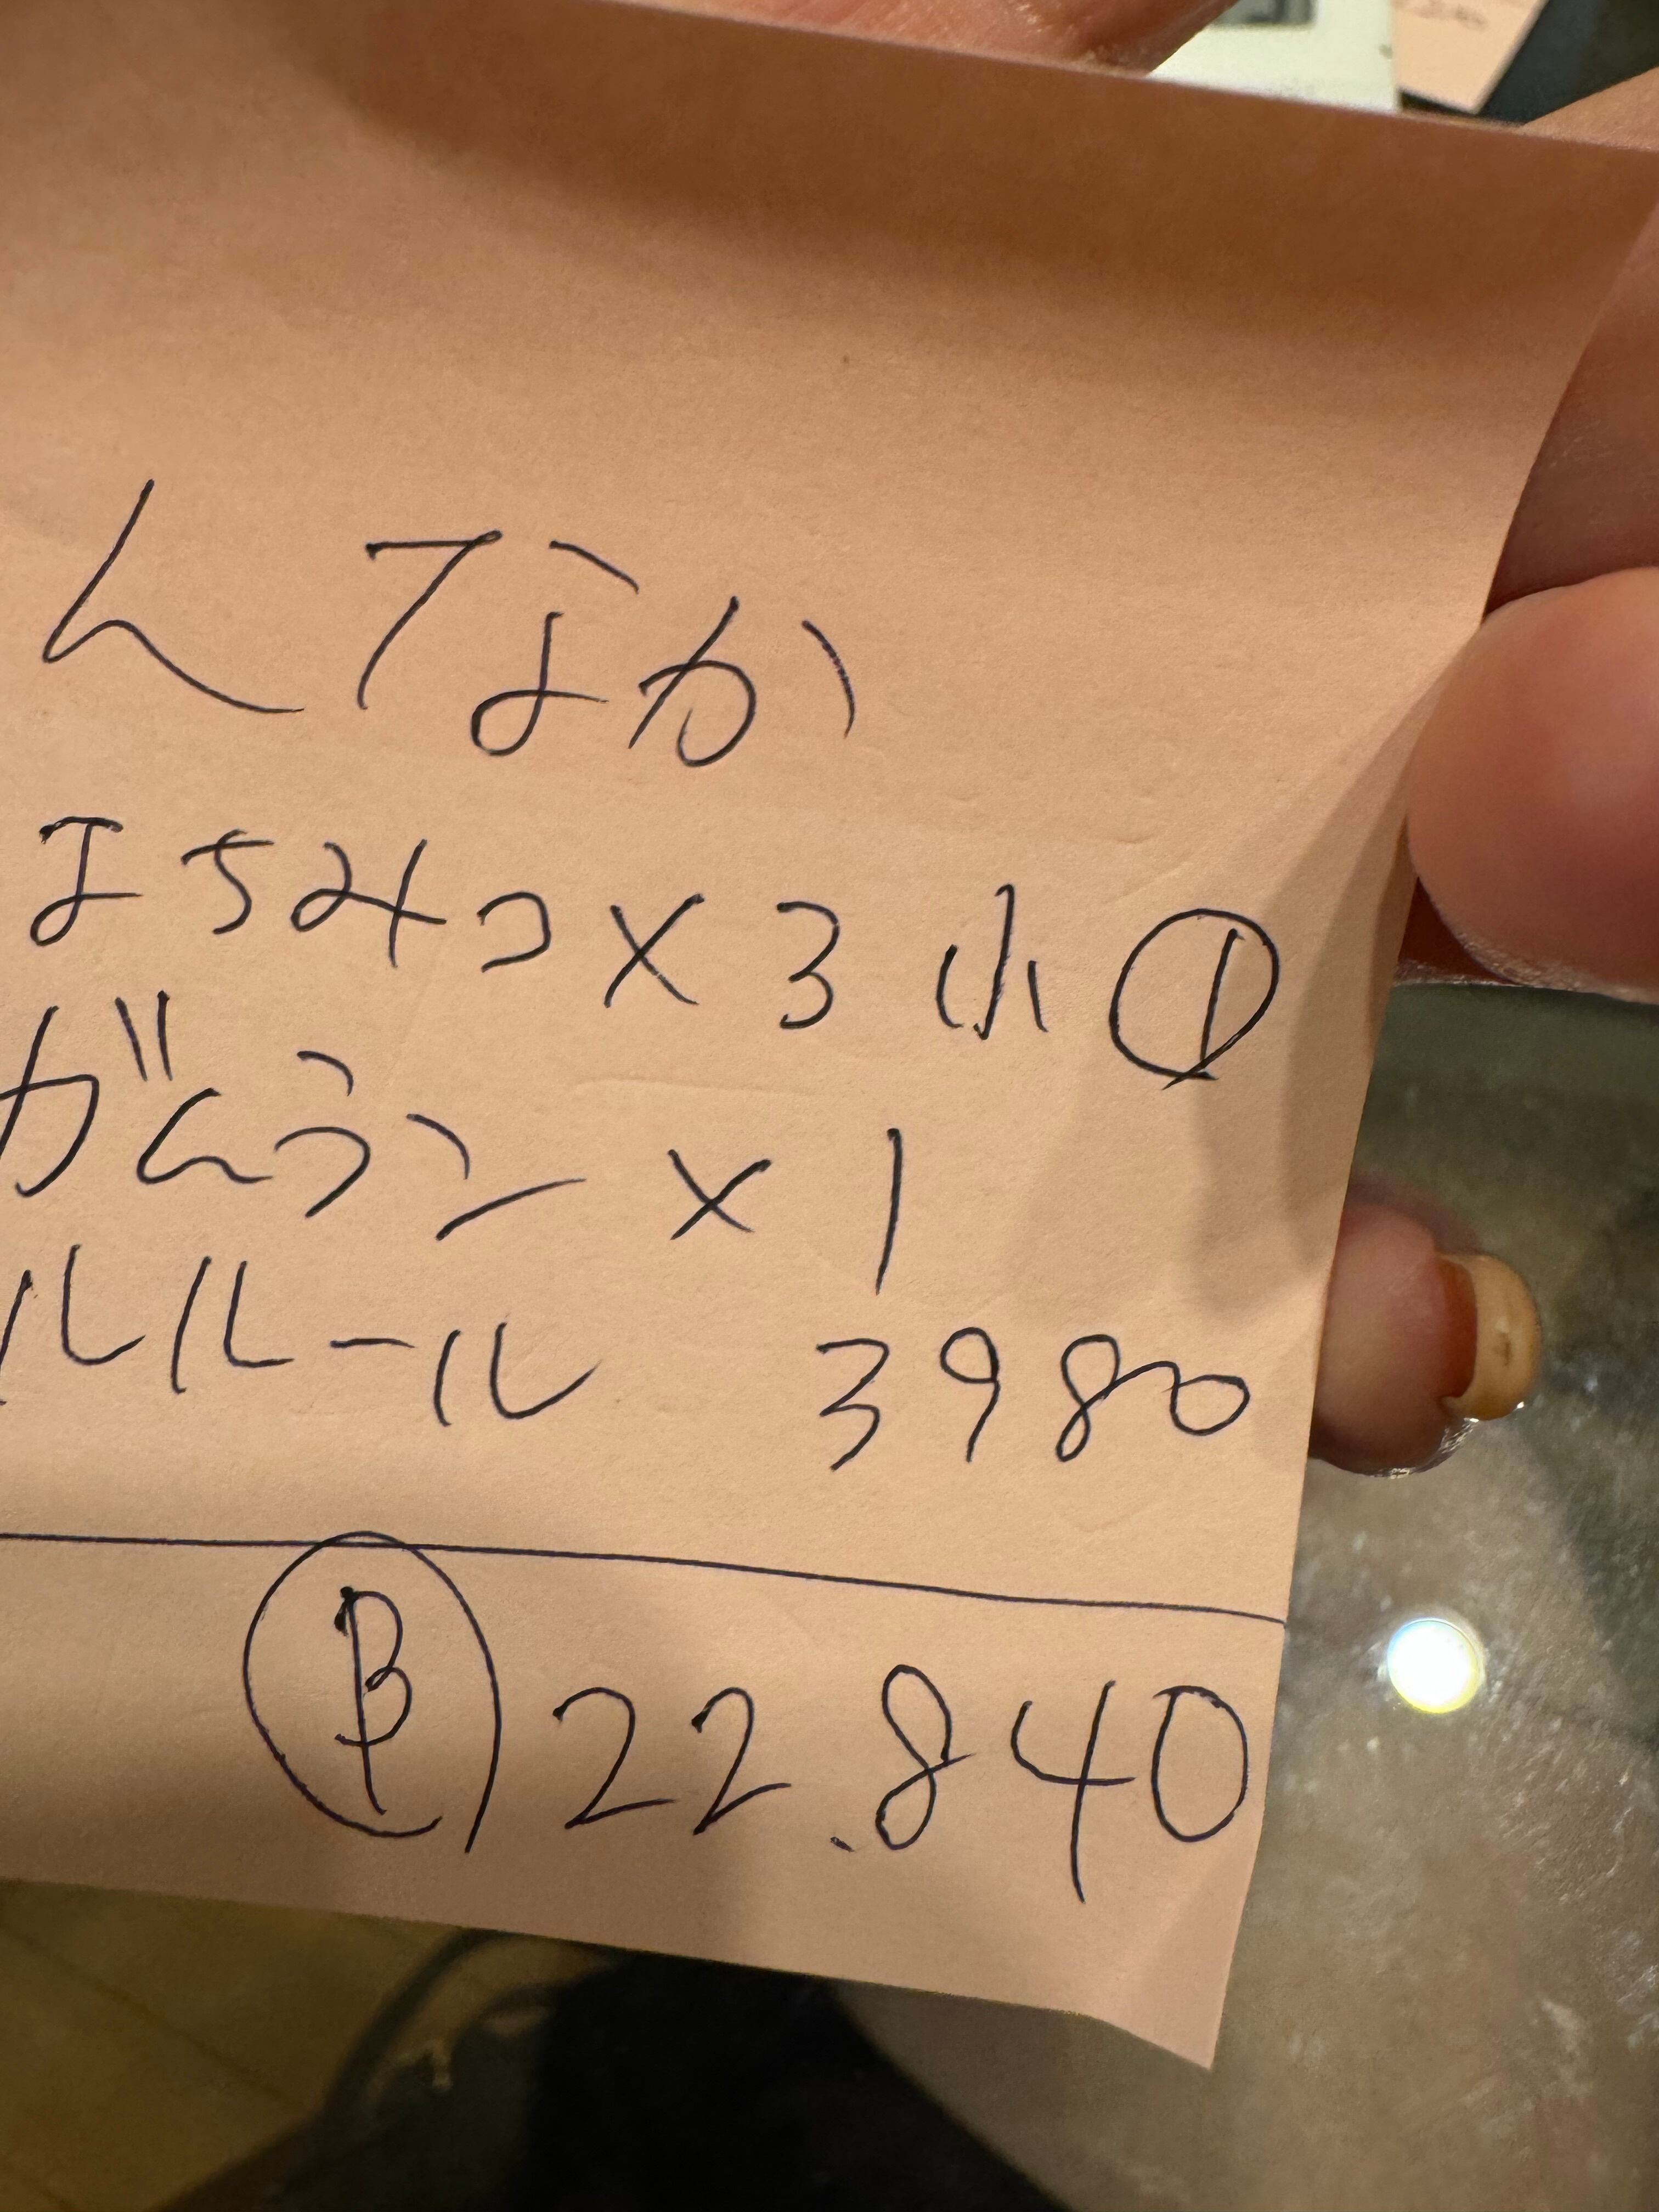 んでなか
よちみつ×3 小①
がんラン×1
ルルール 3980
Ⓑ22.840